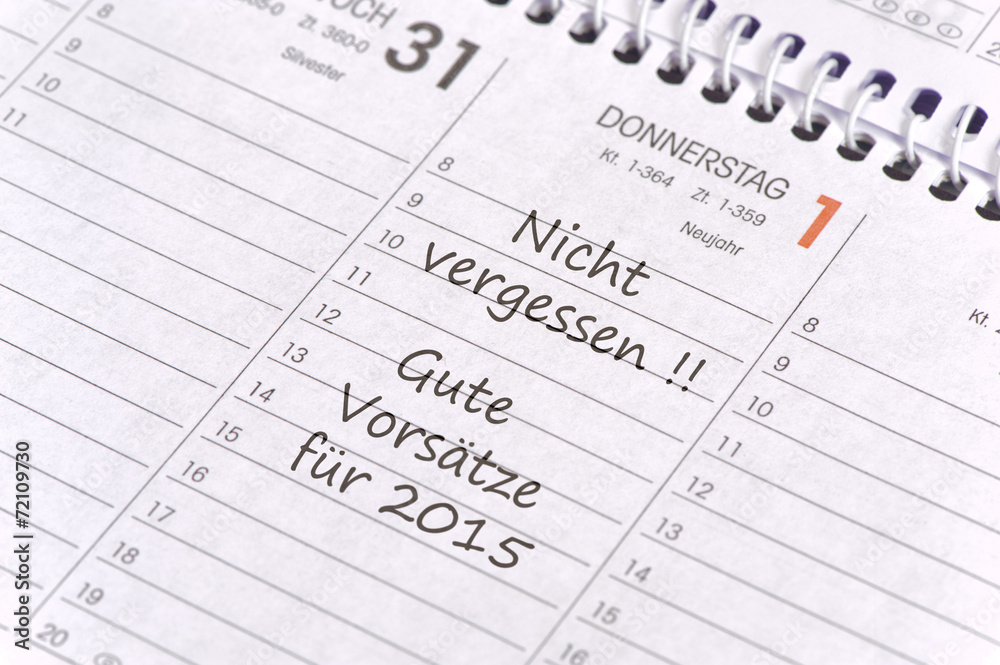 8
9
10
11
31
Zt. 360-0
Silvester
DONNERSTAG
1
Kt. 1-364 Zt. 1-359
Neujahr
8
9
10
11
12
13
14
15
16
17
18
19
20
Nicht
vergessen !!
Gute
Vorsätze
für 2015
Kt.
8
9
10
11
12
13
14
15
16
Adobe Stock | #72109730